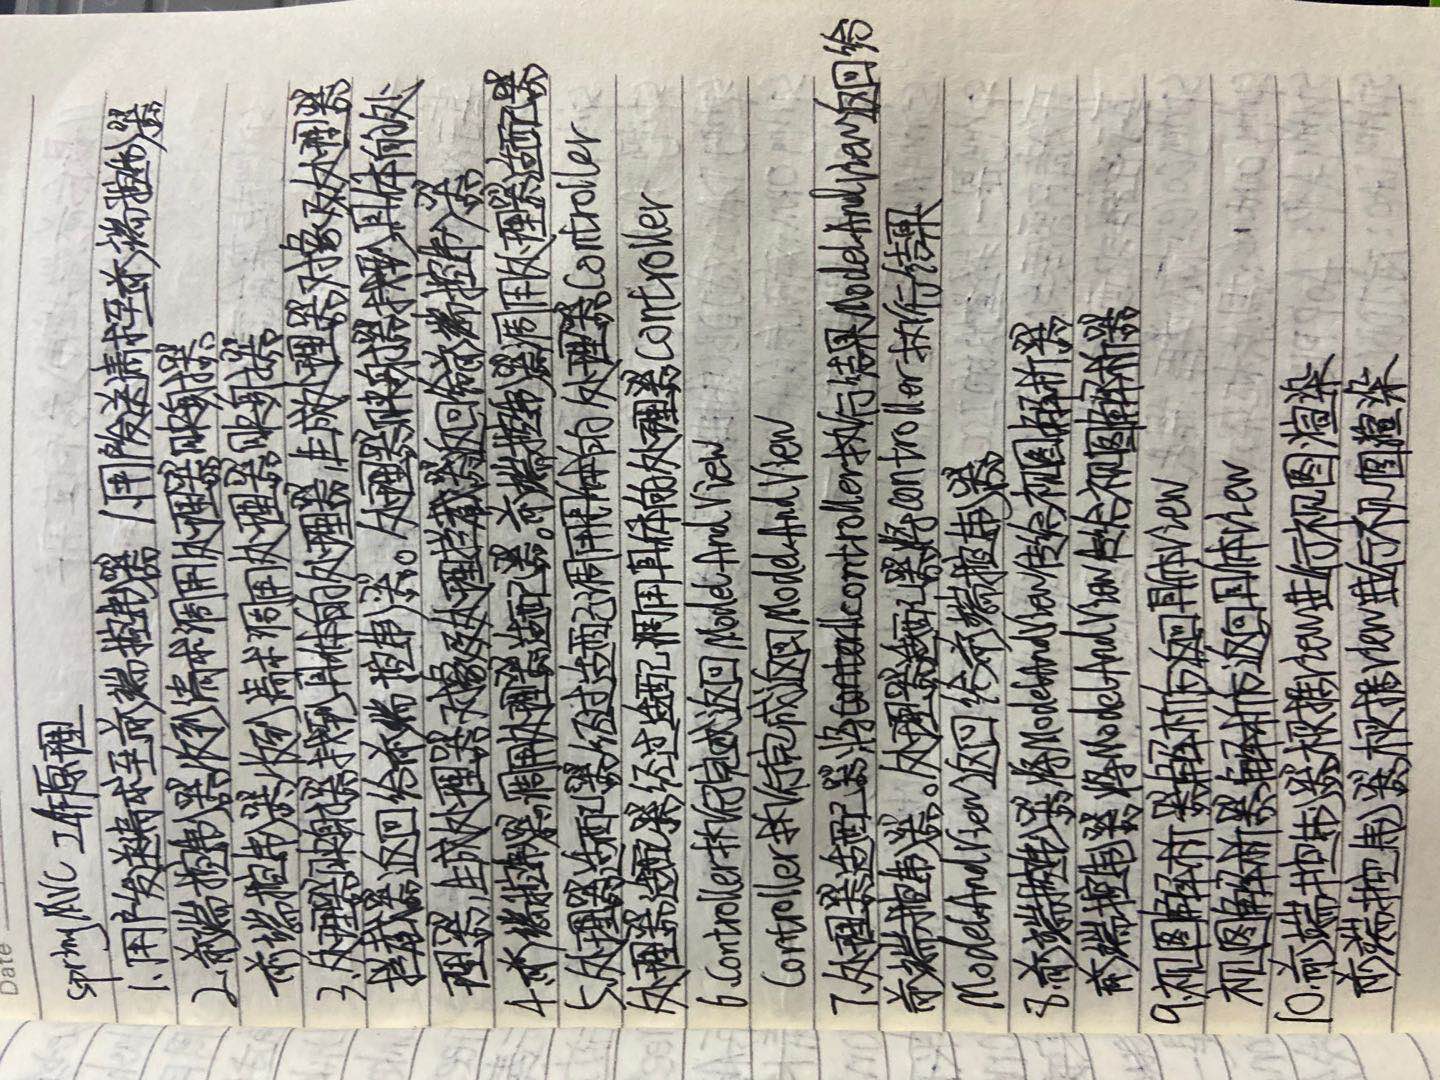 Date
springMVC 工作原理
1.用户发送请求至前端控制器 1.用户发送请求至前端控制器
2.前端控制器收到请求调用处理器映射器
前端控制器收到请求调用处理器映射器
3.处理器映射器找到具体的处理器,生成处理器对象及处理器
拦截器返回给前端控制器。处理器映射器找到具体的处
理器,生成处理器对象及处理拦截器返回给前端控制器
4.前端控制器调用处理器适配器。前端控制器调用处理器适配器
5.处理器适配器经过适配调用具体的处理器Controller
处理器适配器经过适配调用具体的处理器Controller
6.Controller执行完成返回ModelAndView
Controller执行完成返回ModelAndView
7.处理器适配器将controller执行结果ModelAndView返回给
前端控制器。处理器适配器将controller执行结果
ModelAndView返回给前端控制器
8.前端控制器将ModelAndView传给视图解析器
前端控制器将ModelAndView传给视图解析器
9.视图解析器解析后返回具体View
视图解析器解析后返回具体View
10.前端控制器根据View进行视图渲染
前端控制器根据View进行视图渲染